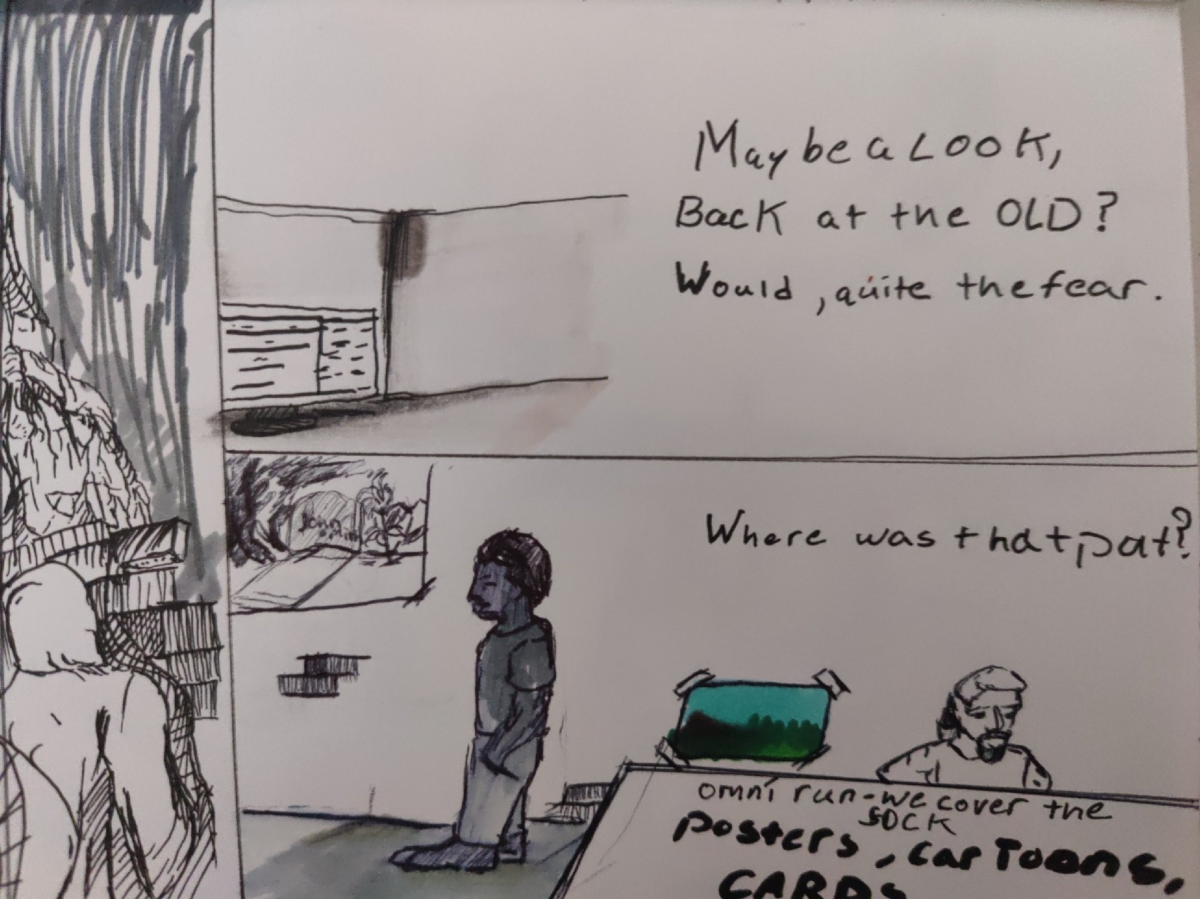 Maybe a LOOK,
Back at the OLD?
Would, quite the fear.
Where was that, pat?
omni run-we cover the
SOCK
posters, carToons,
CARDS